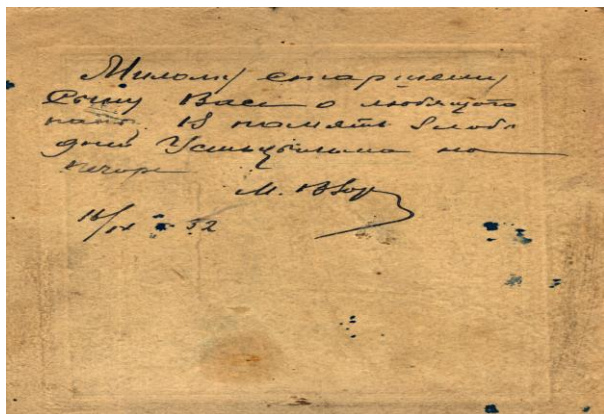 Милому старшему
Сыну Васе о любящего
папы. В память
дни Устьцыльма на
Печоре
М.
16/IX 32